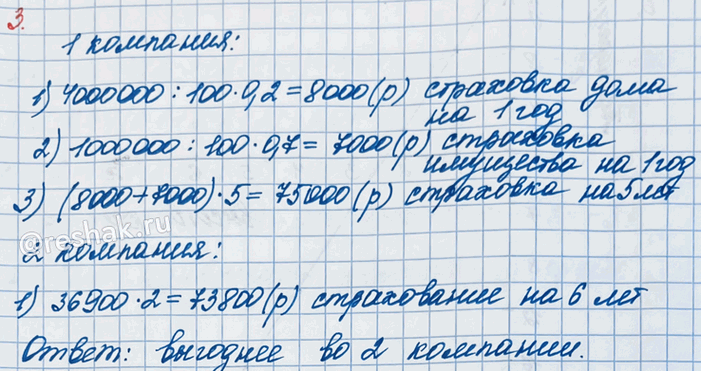 3.
1 компания:
1) 4000000 : 100 · 0,2 = 8000 (р) страховка дома
на 1 год
2) 1000000 : 100 · 0,7 = 7000 (р) страховка
имущества на 1 год
3) (8000 + 7000) · 5 = 75000 (р) страховка на 5 лет
@reshak.ru
2 компания:
1) 36900 · 2 = 73800 (р) страхование на 6 лет
Ответ: выгоднее во 2 компании.